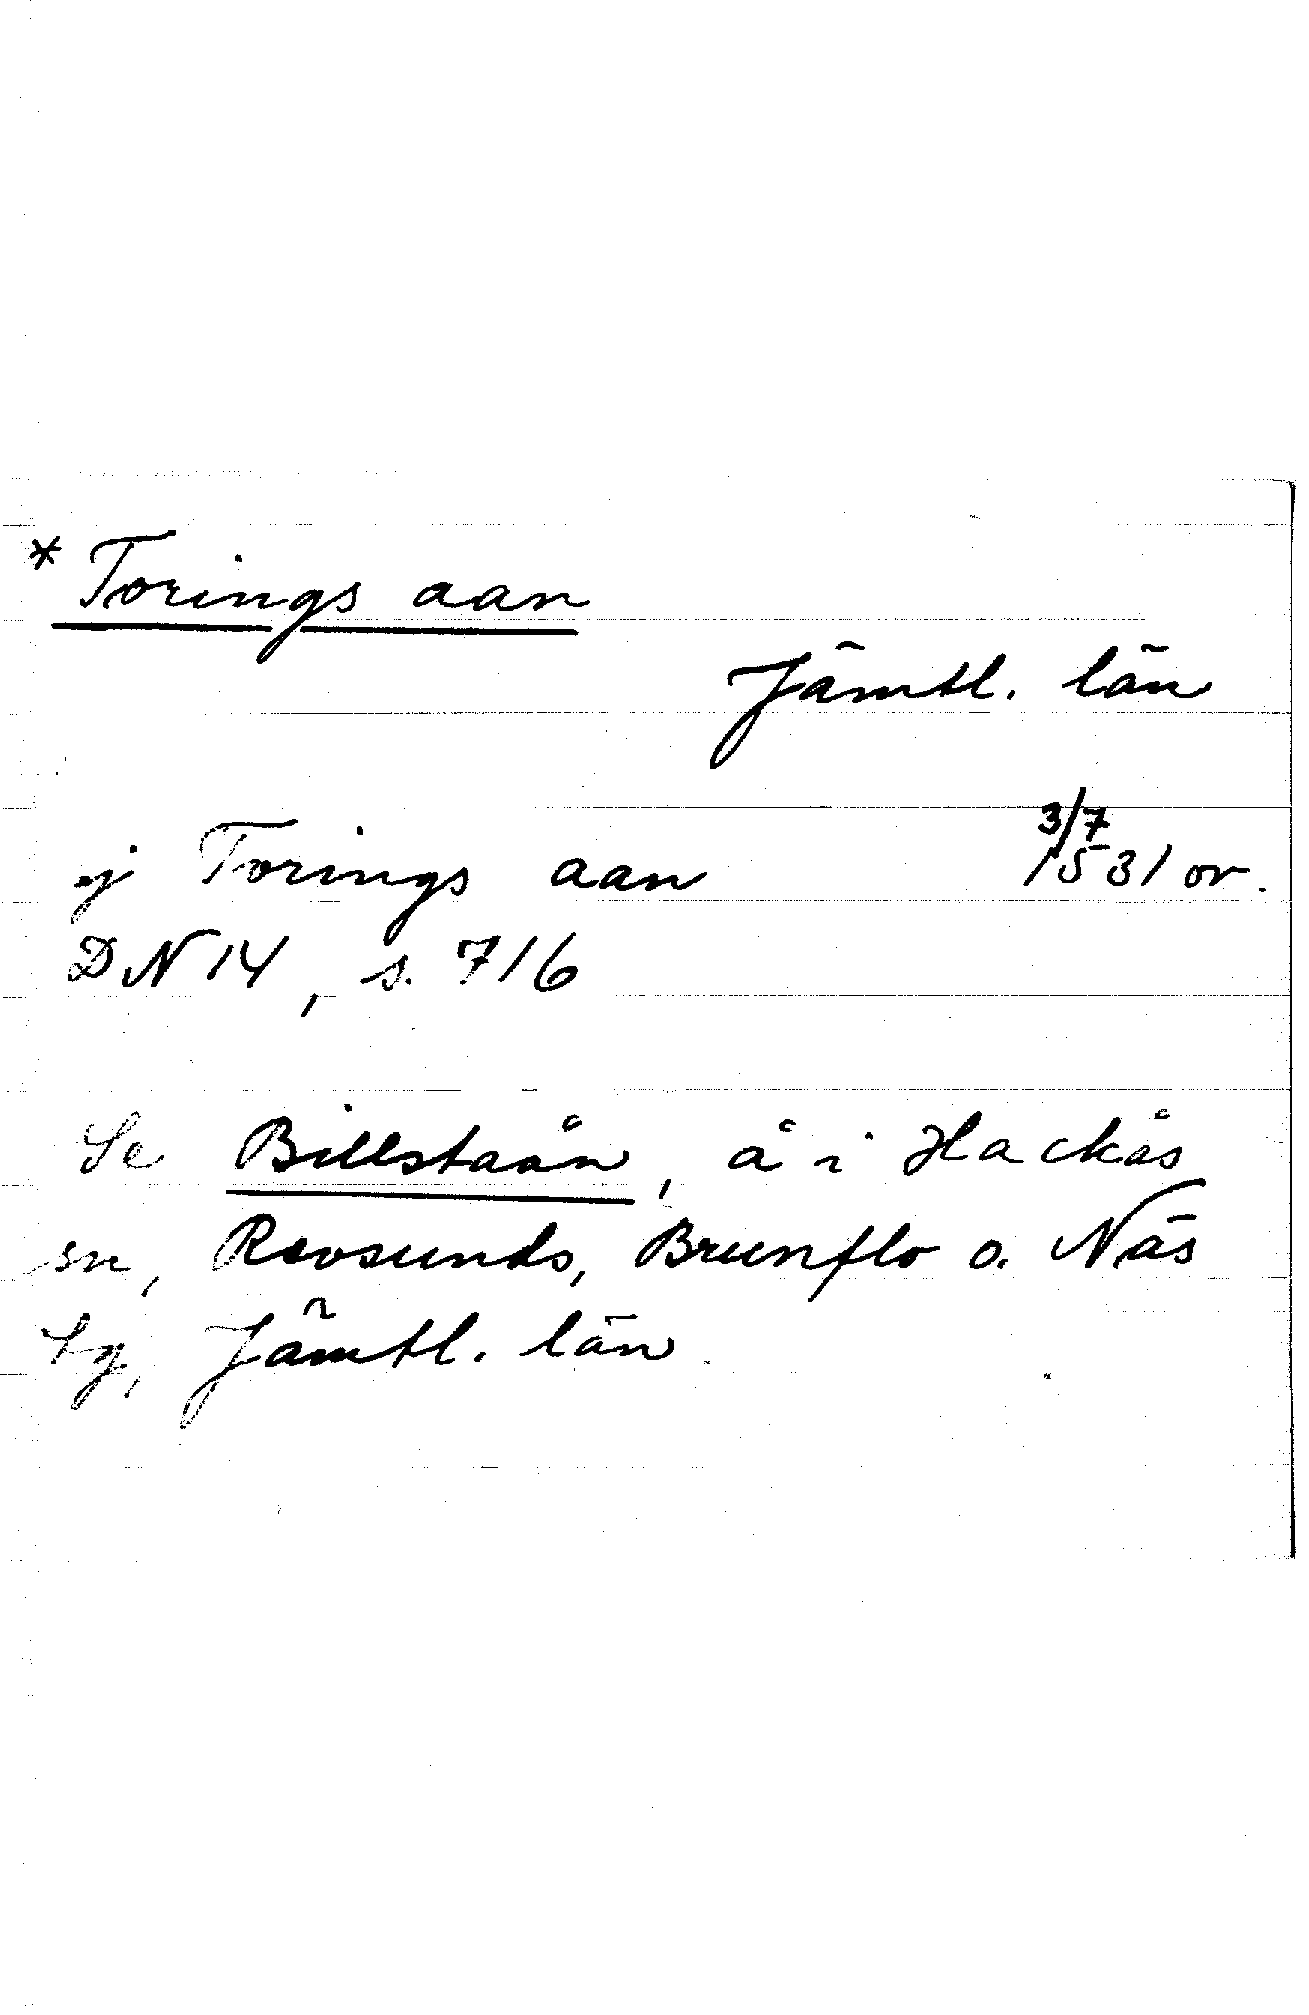 * Torings aan
Jämtl. län
ij Torings aan 3/7 1531 or.
DN 14, s. 716
Se Billstaån, å i Hackås
sn, Revsunds, Brunflo o. Näs
tg, Jämtl. län